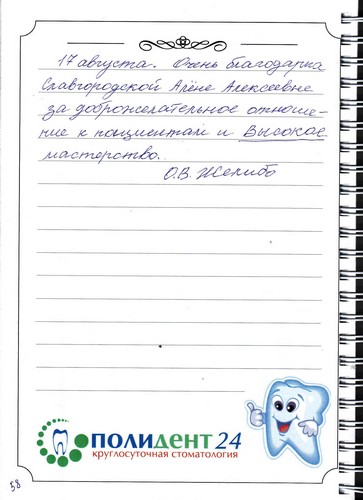 17 августа. Очень благодарна
Славгородской Алёне Алексеевне
за доброжелательное отноше-
ние к пациентам и высокое
мастерство.
О.В. Желибо
ПОЛИДЕНТ 24
круглосуточная стоматология
58